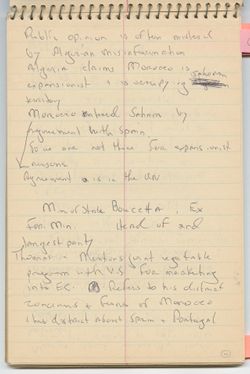 Public opinion is often misled
by Algerian misinformation
Algeria claims Morocco is
expansionist & is occupying Saharan
territory
Morocco entered Sahara by
agreement with Spain
So we are not there for expansionist
reasons.
Agreement is in the UN
Min of State Boucetta, Ex
For. Min. Head of 2nd
largest party
Thomas - Mentions great vegetable
program with U.S. for marketing
into EC. Refers to his district
concerns & fears of Morocco
this district about Spain & Portugal